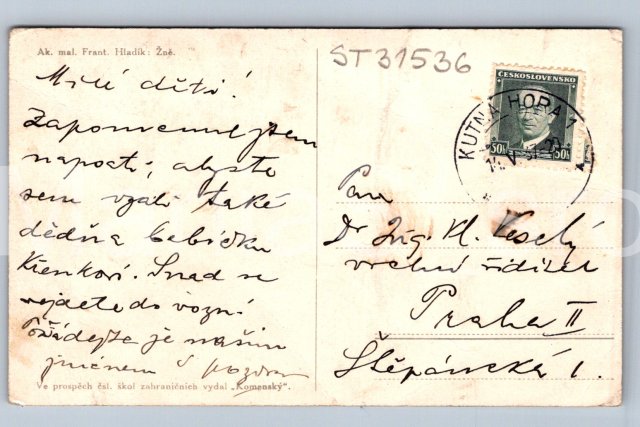 Ak. mal. Frant. Hladík: Žně.
ST31536
ČESKOSLOVENSKO
50h 50h
KUTNÁ HORA
Milé děti!
Zapomenul jsem
napsati, abyste
sem vzali také
dědu a babičku
Křenkovi. Snad se
vejdete do vozu!
Požádejte je našim
jménem S pozdravem
Pan
Dr Ing. Kl. Veselý
vrchní ředitel
Praha II
Štěpánská 1.
Ve prospěch čsl. škol zahraničních vydal „Komenský".